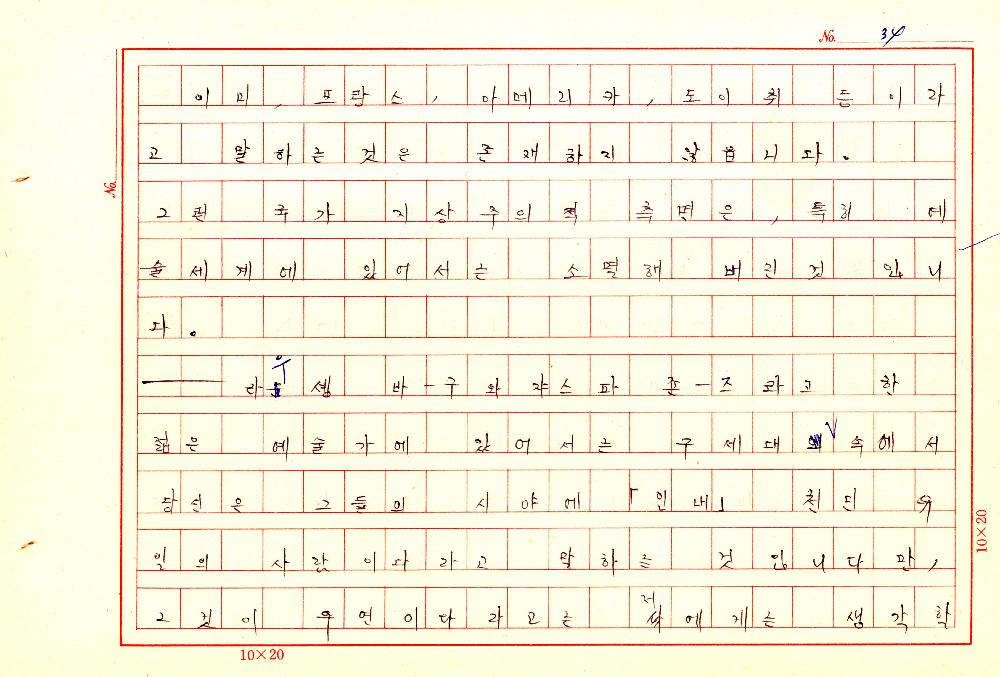 No. 34
이미, 프랑스, 아메리카, 도이취 등이라
고 말하는 것은 존재하지 않습니다.
No.
그런 국가 지상주의적 측면은, 특히 예
술세계에 있어서는 소멸해 버린것 입니
다.
우
── 라 솅바-구와 쟈스파 죤-즈라고 한
젊은 예술가에 있어서는 구세대 속에서
당신은 그들의 시야에 「인내」 천된 유
일의 사람이다라고 말하는 것입니다만,
저
그것이 우연이다라고는 에게는 생각할
10×20
10×20